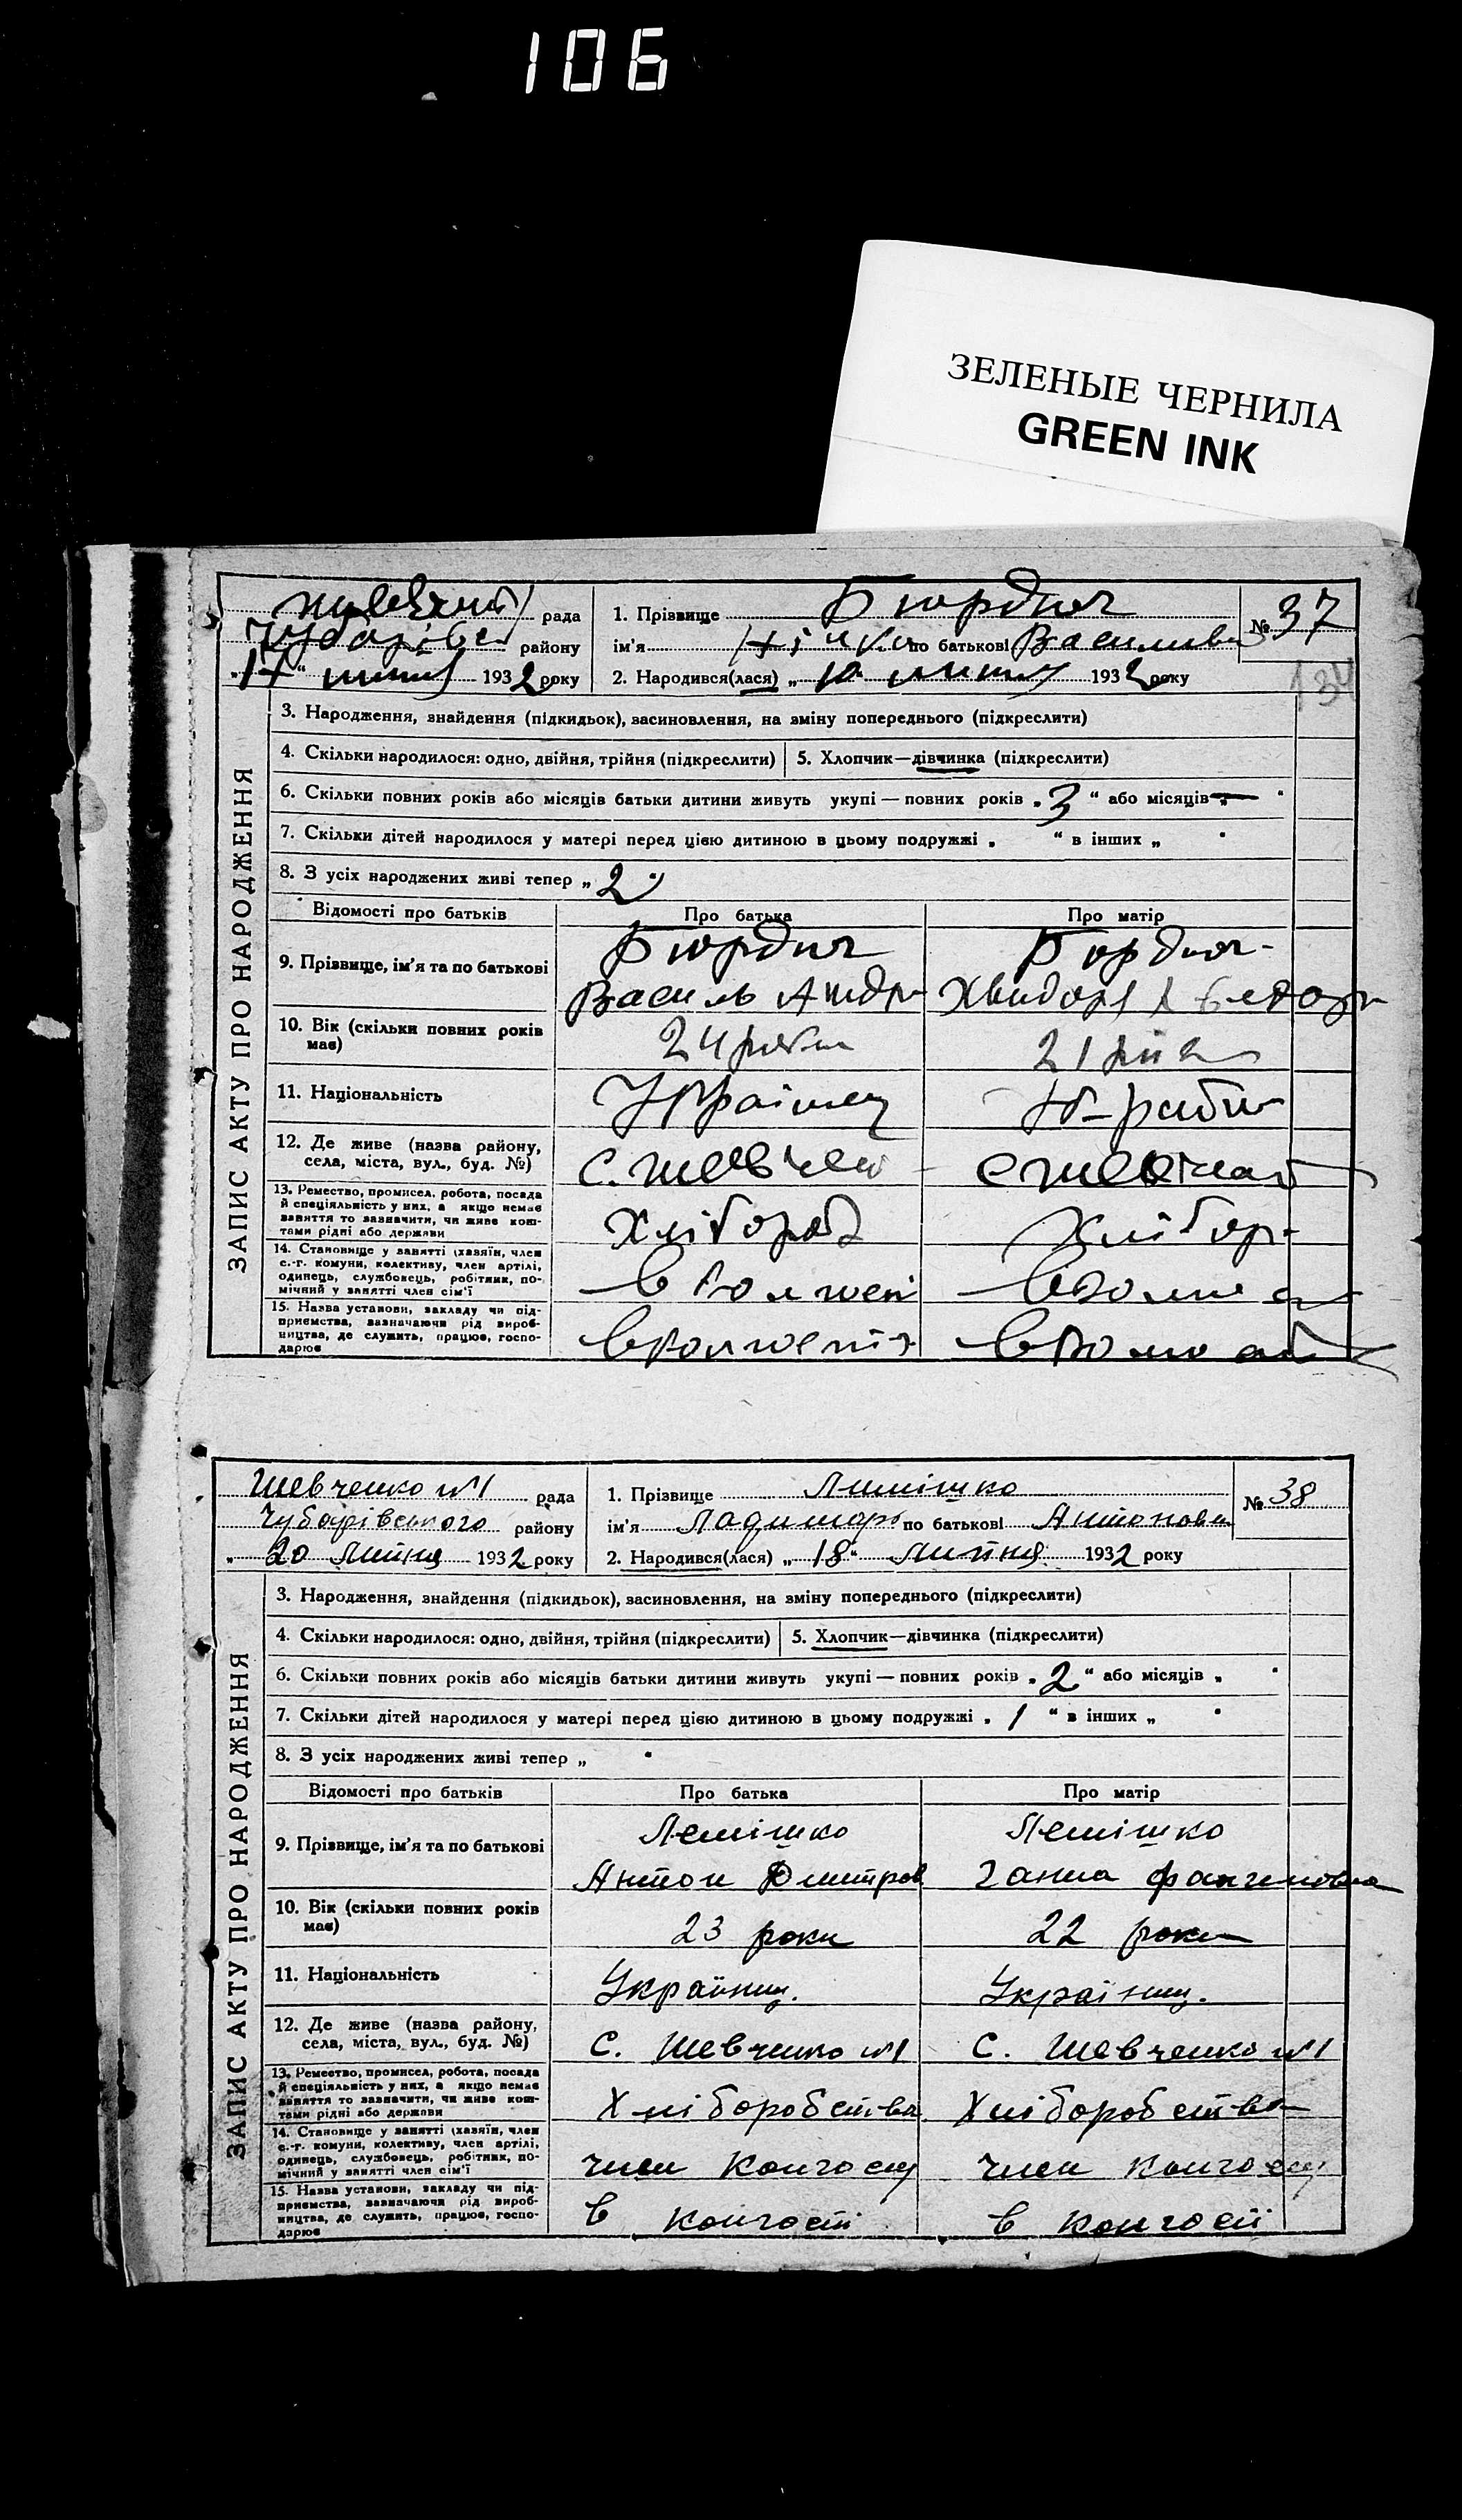 106
ЗЕЛЕНЫЕ ЧЕРНИЛА
GREEN INK
рада
району
"17" 1932 року
1. Прізвище
ім'я по батькові
2. Народився(лася) " 10 " 1932 року
№ 37
134
ЗАПИС АКТУ ПРО НАРОДЖЕННЯ
3. Народження, знайдення (підкидьок), засиновлення, на зміну попереднього (підкреслити)
4. Скільки народилося: одно, двійня, трійня (підкреслити) 5. Хлопчик—дівчинка (підкреслити)
6. Скільки повних років або місяців батьки дитини живуть укупі — повних років „ 3 “ або місяців „ — “
7. Скільки дітей народилося у матері перед цією дитиною в цьому подружжі „ “ в інших „ “
8. З усіх народжених живі тепер „ 2 “
Відомості про батьків Про батька Про матір
9. Прізвище, ім'я та по батькові
Василь
10. Вік (скільки повних років має) 24 роки 21 рік
11. Національність Українец
12. Де живе (назва району, села, міста, вул., буд. №) с.
13. Ремество, промисел, робота, посада
й спеціяльність у них, а якщо немає
заняття то зазначити, чи живе кош-
тами рідні або держави
Хлібороб Хлібор-
14. Становище у занятті (хазяїн, член
с.-г. комуни, колективу, член артілі,
одинець, службовець, робітник, по-
мічний у занятті член сім'ї
15. Назва установи, закладу чи під-
приємства, зазначаючи рід вироб-
ництва, де служить, працює, госпо-
дарює
Шевченко №1 рада
Чубарівського району
„ 20 Липня 1932 року
1. Прізвище Лимішко
ім'я по батькові Антонови
2. Народився(лася) „ 18 “ Липня 1932 року
№ 38
ЗАПИС АКТУ ПРО НАРОДЖЕННЯ
3. Народження, знайдення (підкидьок), засиновлення, на зміну попереднього (підкреслити)
4. Скільки народилося: одно, двійня, трійня (підкреслити) 5. Хлопчик—дівчинка (підкреслити)
6. Скільки повних років або місяців батьки дитини живуть укупі — повних років „ 2 “ або місяців „ “
7. Скільки дітей народилося у матері перед цією дитиною в цьому подружжі „ 1 “ в інших „ “
8. З усіх народжених живі тепер „ “
Відомості про батьків Про батька Про матір
9. Прізвище, ім'я та по батькові
Лемішко Лемішко
Антон Дмитров Ганна
10. Вік (скільки повних років має) 23 роки 22 роки
11. Національність Українц. Українц.
12. Де живе (назва району, села, міста, вул., буд. №) С. Шевченко №1 С. Шевченко №1
13. Ремество, промисел, робота, посада
й спеціяльність у них, а якщо немає
заняття то зазначити, чи живе кош-
тами рідні або держави
Хліборобства Хліборобства
14. Становище у занятті (хазяїн, член
с.-г. комуни, колективу, член артілі,
одинець, службовець, робітник, по-
мічний у занятті член сім'ї
член колгоспу член колгоспу
15. Назва установи, закладу чи під-
приємства, зазначаючи рід вироб-
ництва, де служить, працює, госпо-
дарює
в колгоспі в колгоспі